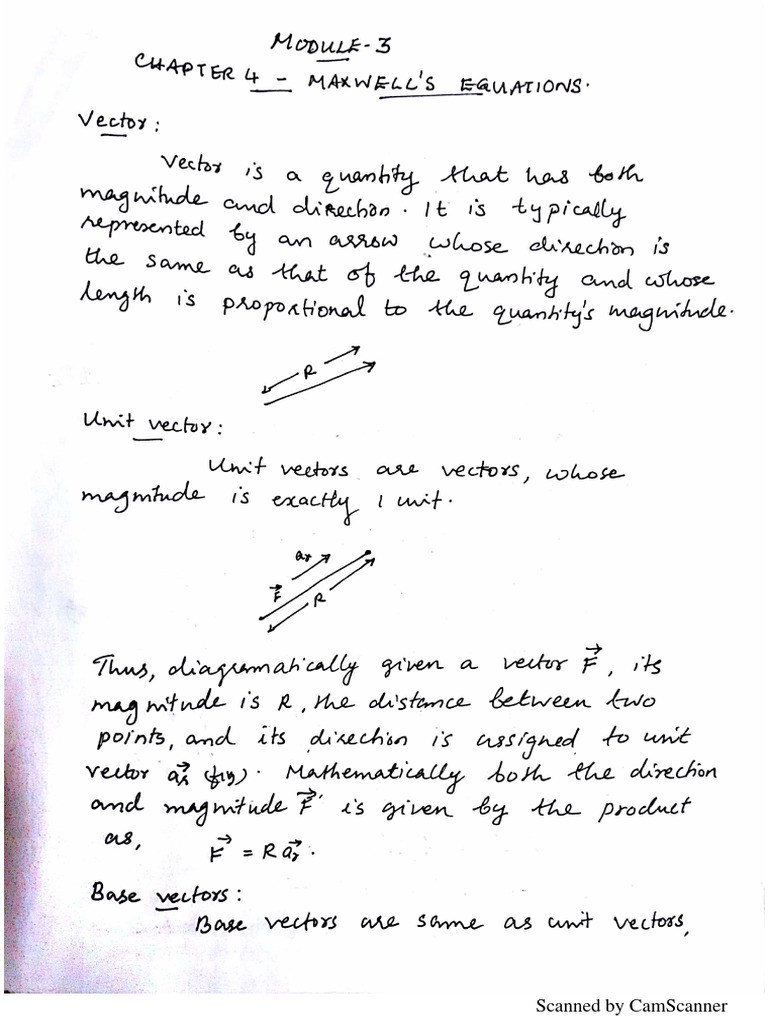 MODULE-3
CHAPTER 4 - MAXWELL'S EQUATIONS.
Vector:
Vector is a quantity that has both
magnitude and direction. It is typically
represented by an arrow whose direction is
the same as that of the quantity and whose
length is proportional to the quantity's magnitude.
R
Unit vector:
Unit vectors are vectors, whose
magnitude is exactly 1 unit.
ar
F⃗
R
Thus, diagramatically given a vector F⃗, its
magnitude is R, the distance between two
points, and its direction is assigned to unit
vector a⃗r (fig). Mathematically both the direction
and magnitude F⃗ is given by the product
as,
F⃗ = R a⃗r.
Base vectors:
Base vectors are same as unit vectors,
Scanned by CamScanner